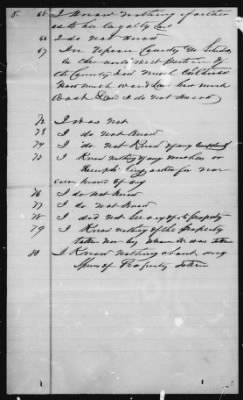 5. 65 I Know nothing of either
as to his loyalty
66 I do not Know
67 In Tippah County
in the north west portion of
the County how much Cultivated
How much wood Land how much
Waste Land I do not Know
72 I was not
73 I do not Know
74 I do not Know of any
75 I Know nothing of any
Receipt
ever heard of any
76 I do not Know
77 I do not Know
78 I did not see any of the property
79 I Know nothing of the property
taken nor by whom it was taken
80 I Know nothing about any
of Property taken